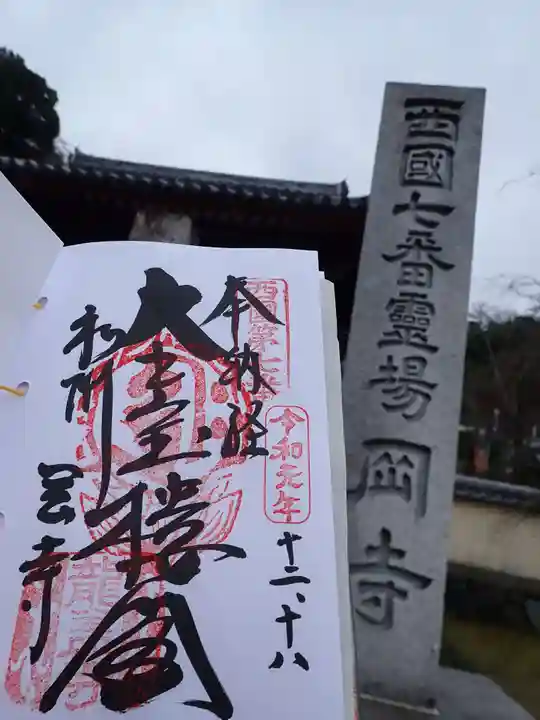 西國七番靈場 岡寺
奉納経
西国第七番
令和元年
十二、十八
和州
岡寺